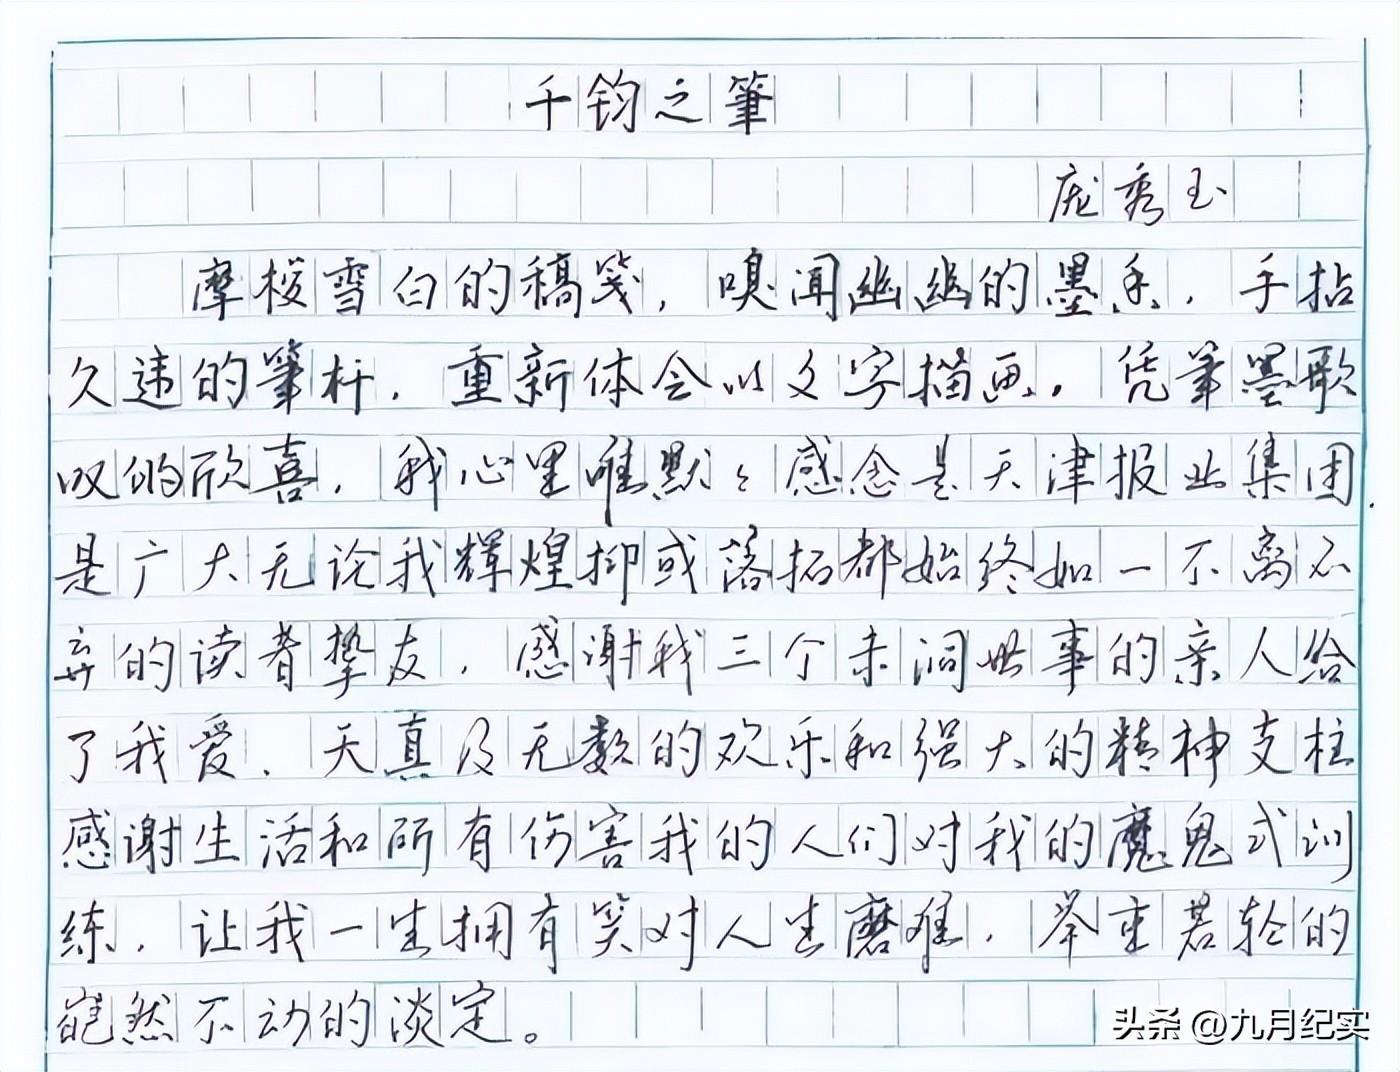 千钧之筆
庞秀玉
摩梭雪白的稿笺，嗅闻幽幽的墨香，手拈
久违的筆杆，重新体会以文字描画，凭筆墨歌
叹的欣喜，我心里唯默々感念是天津报业集团，
是广大无论我辉煌抑或落拓都始终如一不离不
弃的读者挚友，感谢我三个未洞世事的亲人给
了我爱、天真及无数的欢乐和强大的精神支柱
感谢生活和所有伤害我的人们对我的魔鬼式训
练，让我一生拥有笑对人生磨难，举重若轻的
岿然不动的淡定。
头条 @九月纪实